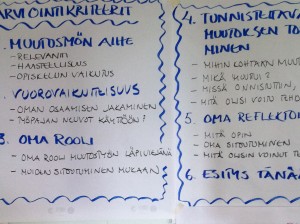 ARVIOINTIKRITEERIT
1. MUUTOSTYÖN AIHE
- RELEVANTTI
- HAASTEELLISUUS
- OPISKELUN VAIKUTUS
VUOROVAIKUTTEISUUS
- OMAN OSAAMISEN JAKAMINEN
- TYÖPAJAN NEUVOT KÄYTTÖÖN?
3. OMA ROOLI
- OMA ROOLI MUUTOSTYÖN LÄPIVIENNISSÄ
- MUIDEN SITOUTUMINEN MUKAAN
4. TUNNISTETTAVA
MUUTOKSEN TO
MINEN
- MIHIN KOHTAAN MUUT
- MIKÄ MUUTTUI?
- MISSÄ ONNISTUTTIIN,
- MITÄ OLISI VOITU TEHD
5. OMA REFLEKTOI
- MITÄ OPIN
- OMA SITOUTUMINEN
- MITÄ OLISIN VOINUT TE
6. ESITYS TÄNÄ